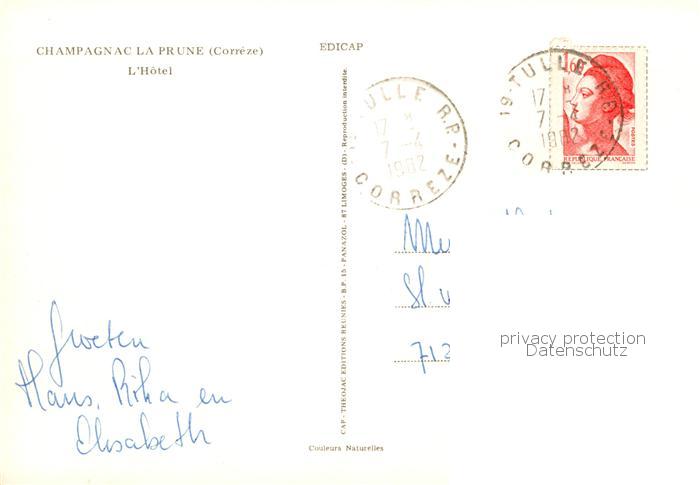 CHAMPAGNAC LA PRUNE (Corrèze)
L'Hôtel
EDICAP
CAP - THEOJAC EDITIONS REUNIES - B.P. 15 - PANAZOL - 87 LIMOGES - (D) - Reproduction interdite.
TULLE R.P.
17 H
7 -4
1982
CORREZE
19-TULLE R.P.
17 H
7 -4
1982
CORREZE
1,60
POSTES
REPUBLIQUE FRANÇAISE
712
privacy protection
Datenschutz
Groeten
Hans, Rika en
Elisabeth
Couleurs Naturelles